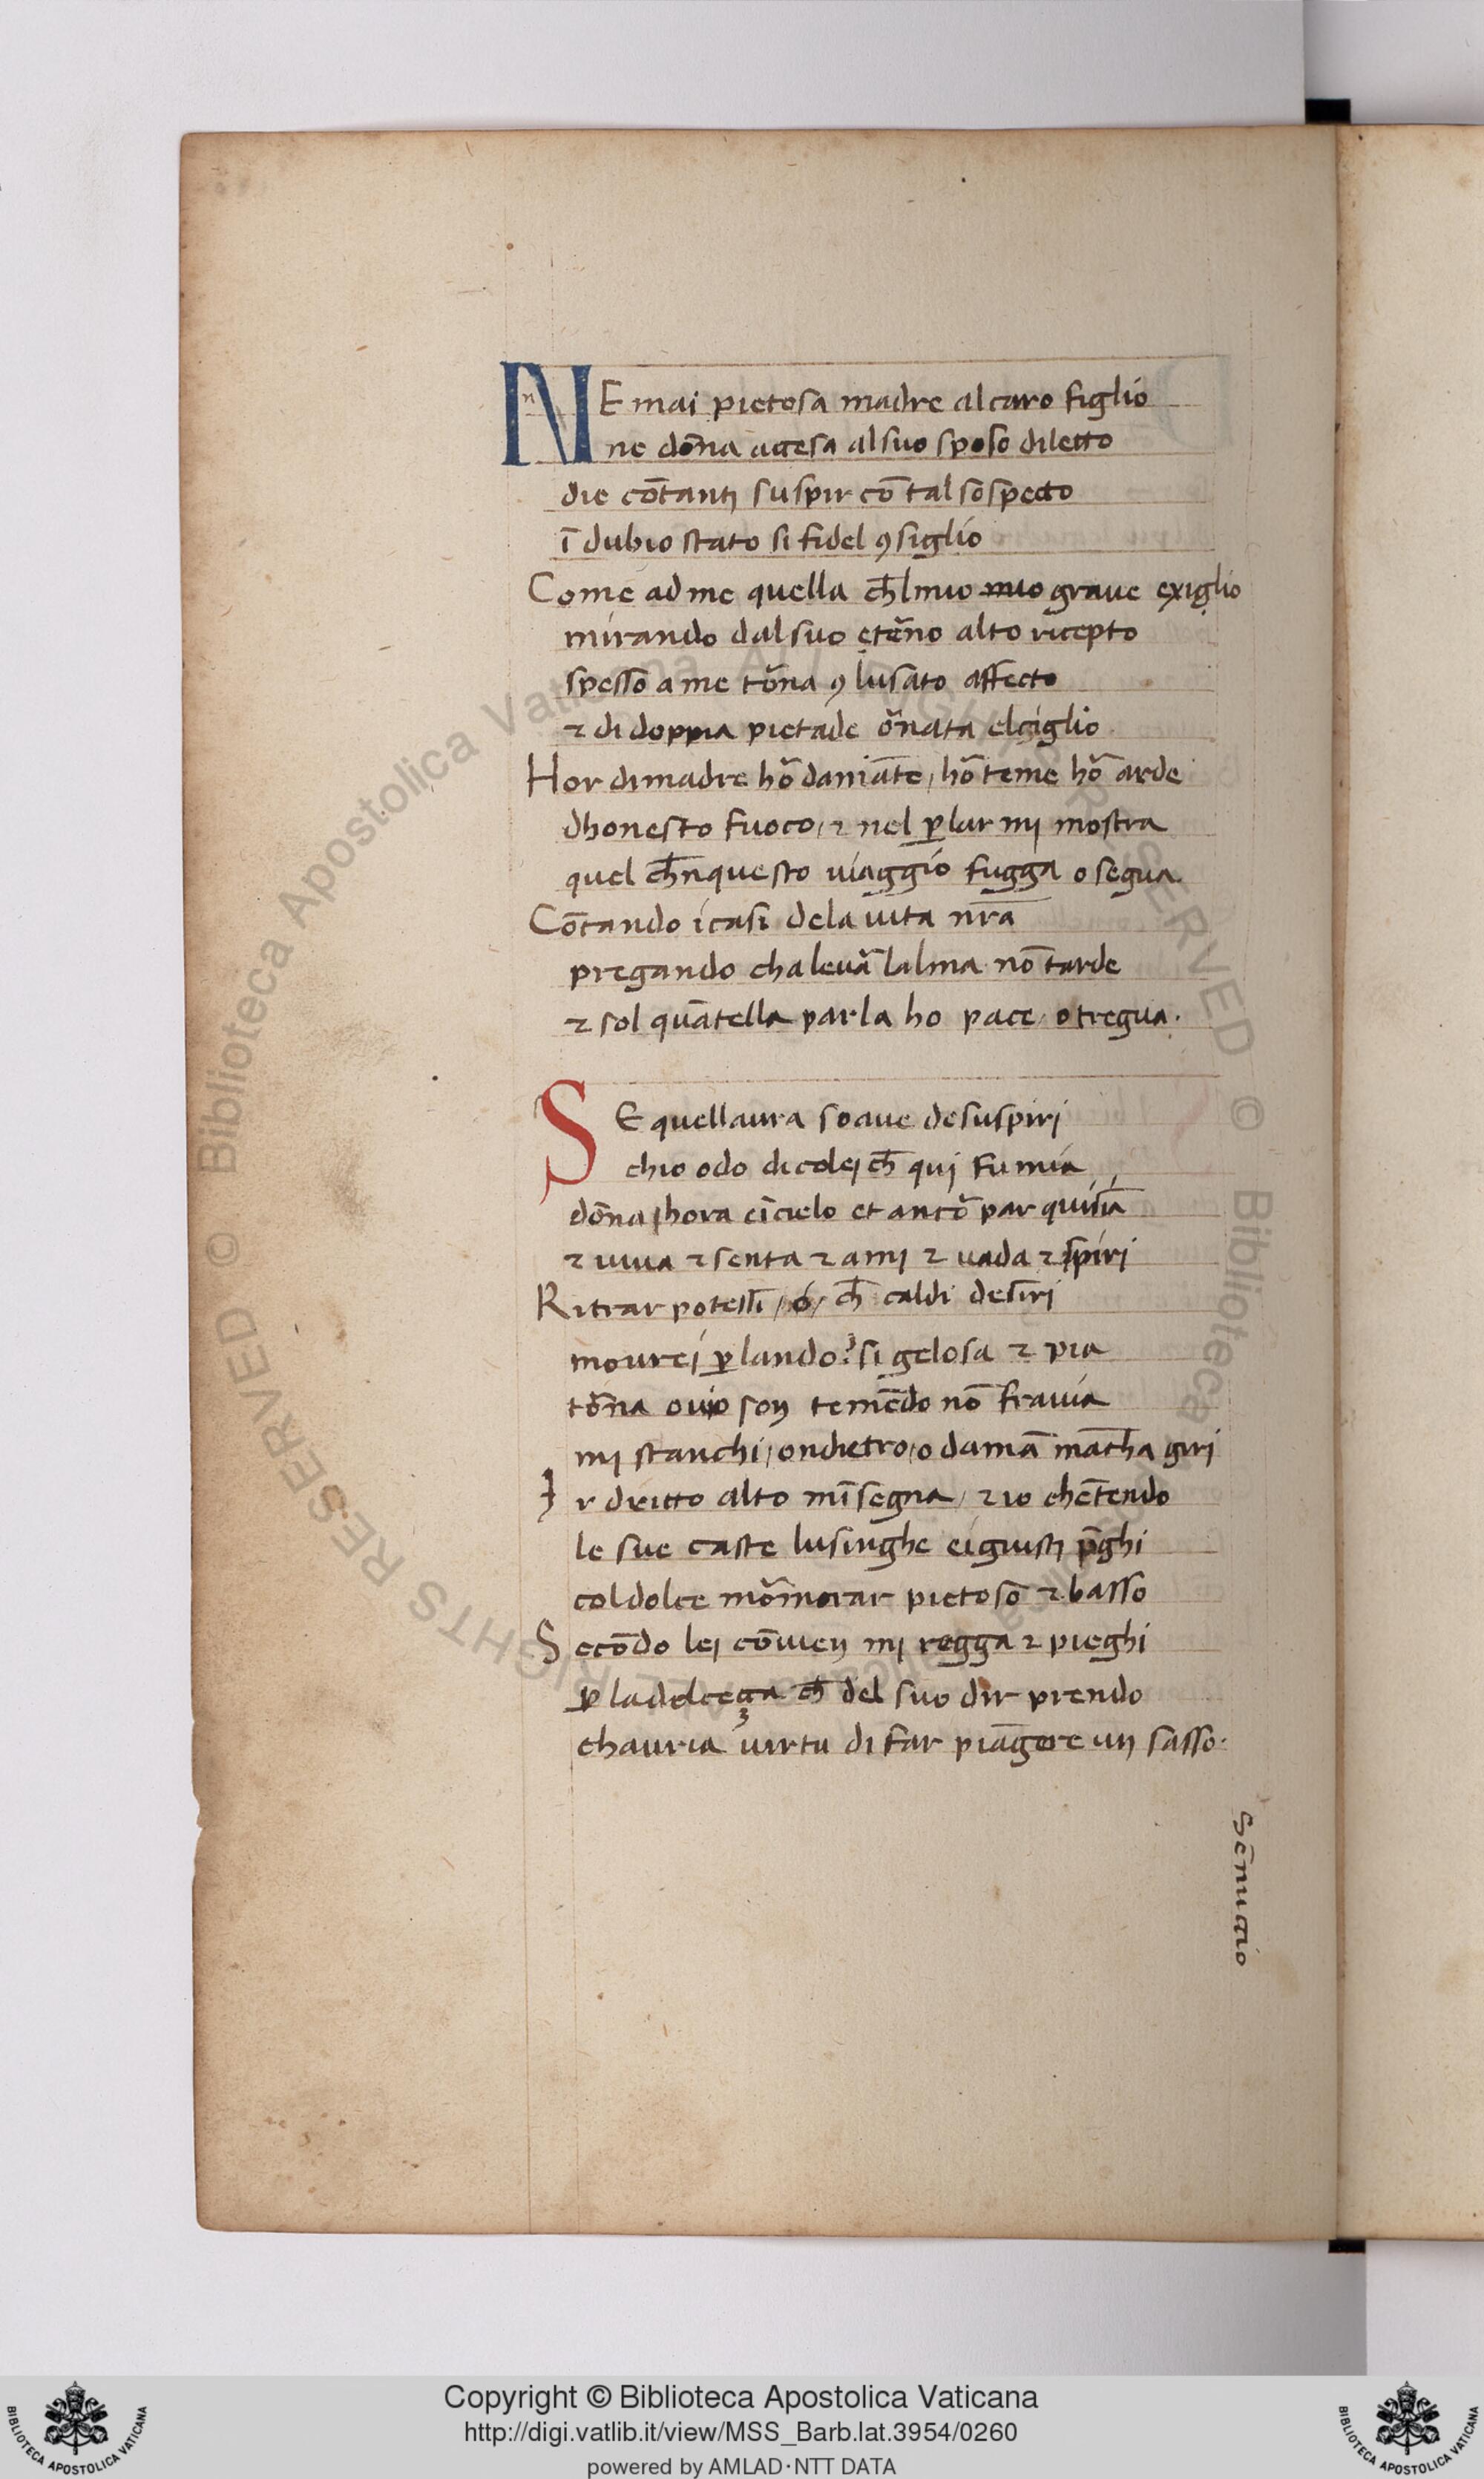 NE mai pietosa madre al caro figlio
ne dōna accesa al suo sposo diletto
die cōtanti suspir cō tal sospecto
ī dubio stato si fidel ꝯsiglio
Come ad me quella ch̄l mio mio graue exiglio
mirando dal suo etēno alto ricepto
spesso a me tōna ꝯ lusato affecto
⁊ di doppia pietade ōnata el ciglio
Hor di madre hō damāte / hō teme hō arde
dhonesto fuoco / ⁊ nel ꝑlar mi mostra
quel ch̄nquesto uiaggio fugga o segua.
Cōtando i casi de la uita nr̄a
pregando cha leuā lalma nō tarde
⁊ sol quātella parla ho pace o tregua.
SE quellaura soaue de suspiri
chio odo di colei ch̄ qui fu mia
dōna / hora e ī cielo et ancō par qui sia
⁊ uiua ⁊ senta ⁊ ami ⁊ uada ⁊ spiri
Ritrar potessi / o / ch̄ caldi desiri
mourei ꝑlando? si gelosa ⁊ pia
tōna ouio son temēdo nō fra uia
mi stanchi / ondietro / o damā mācha giri
Ir dritto alto mīsegna / ⁊ io chētendo
le sue caste lusinghe e i giusti p̄ghi
col dolce mōmorar pietoso ⁊ basso
Secōdo lei cōuien mi regga ⁊ pieghi
ꝑ la dolceça ch̄ del suo dir prendo
chauria uirtu di far piāgere un sasso.
Sēnuccio
© Biblioteca Apostolica Vaticana ALL RIGHTS RESERVED
© Biblioteca Apostolica Vaticana ALL RIGHTS RESERVED
Copyright © Biblioteca Apostolica Vaticana
http://digi.vatlib.it/view/MSS_Barb.lat.3954/0260
powered by AMLAD·NTT DATA
BIBLIOTECA APOSTOLICA VATICANA
BIBLIOTECA APOSTOLICA VATICANA